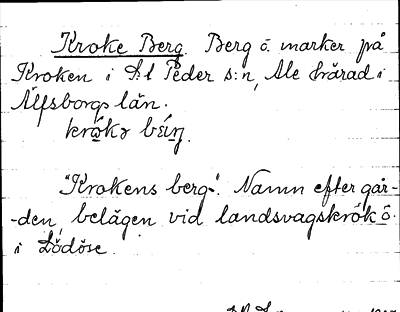 Kroke Berg. Berg o. marker på
Kroken i S:t Peder s:n, Ale härad i
Älfsborgs län.
"Krokens berg". Namn efter går-
-den, belägen vid landsvägskrök ö.
i Lödöse.